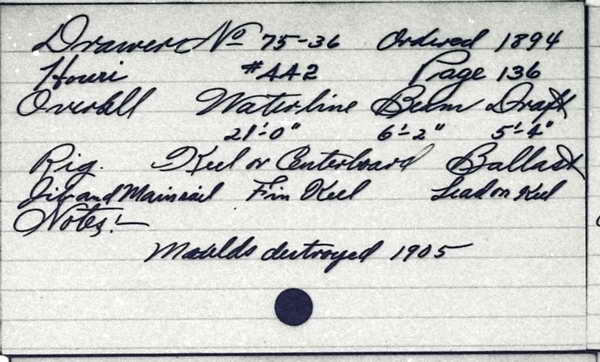 Drawer Nº 75-36 Ordered 1894
Houri #442 Page 136
Overall Waterline Beam Draft
21'-0" 6'-2" 5'-4"
Rig. Keel or Centerboard Ballast
Jib and Mainsail Fin Keel Lead on Keel
Notes:-
Moulds destroyed 1905